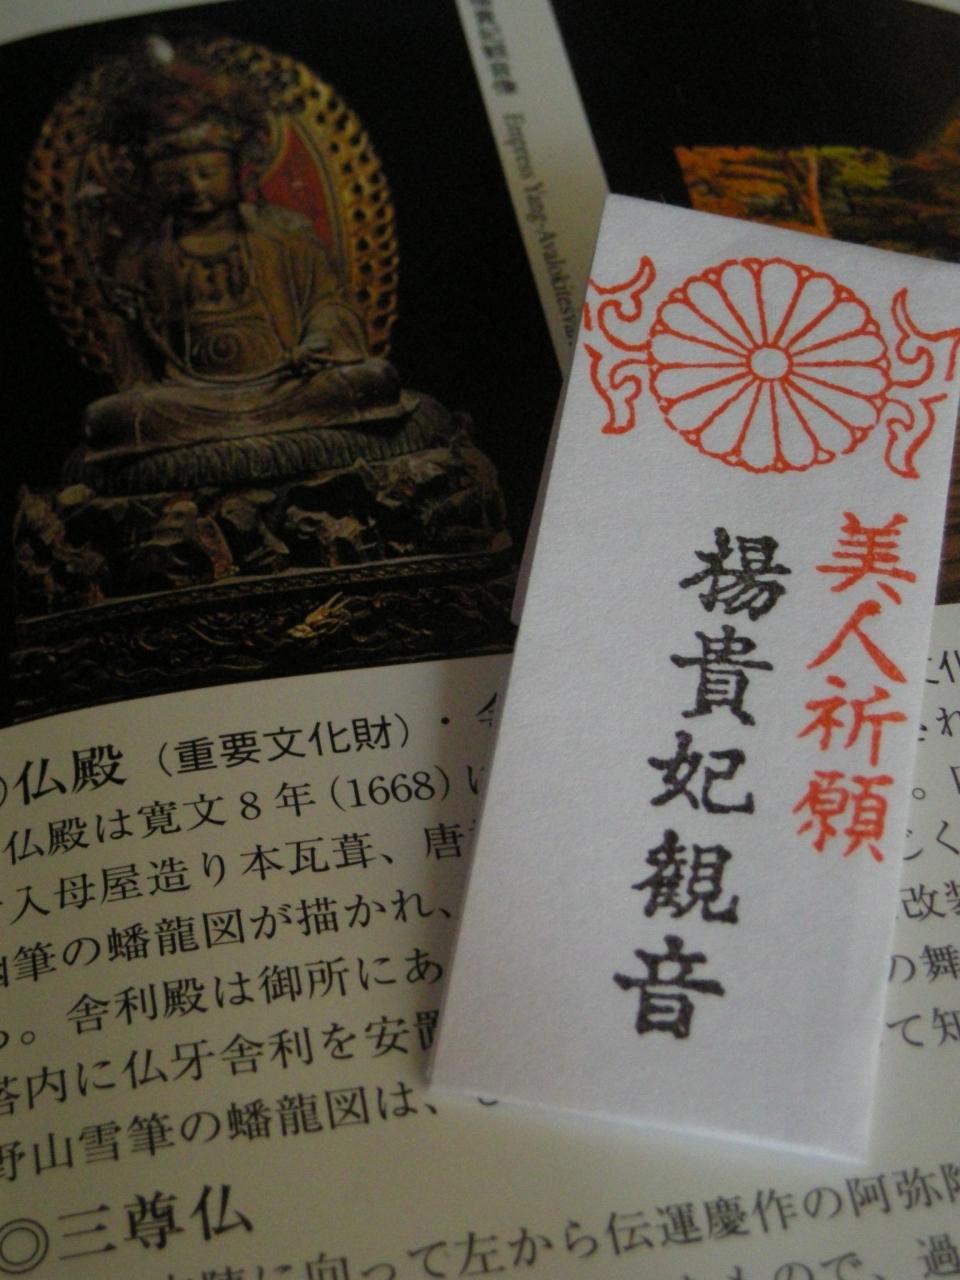 Empress Yang-Avalokitesva
美人祈願
楊貴妃観音
仏殿（重要文化財）・
仏殿は寛文8年（1668）に
入母屋造り本瓦葺、唐
筆の蟠龍図が描かれ、
。舎利殿は御所にあ
塔内に仏牙舎利を安置
野山雪筆の蟠龍図は、
◎三尊仏
に向って左から伝運慶作の阿弥陀
ので、過
。
じく
改装
の舞
て知